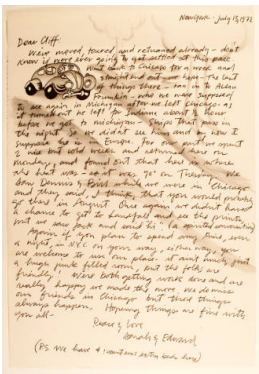 New York - July 15, 1972
Dear Cliff -
We've moved, toured and returned already - don't
know if we're ever going to get settled at this pace.
went back to Chicago for a week and
straightened out
of things there - ran in to Allen
Frumkin - who we were supposed
to see again in Michigan after we left Chicago - as
it turned out he left for Indiana about ½ hour
before we got to Michigan - ships that pass in
the night. So we didn't see him and by now I
suppose he is in Europe. For our part we spent
a nice but cold week and returned here on
Monday, and found out that here is where
the heat was - so it was 90° on Tuesday. We
saw Dennis & Bill while we were in Chicago
and they said, I think, that you would probably
go there in August. Once again we didn't have
a chance to get to
and see the prints,
but we
Again if you plan to spend any time, even
a night, in N.Y.C. on your way, either way, you
are welcome to use our place. it ain't much, just
a huge junk filled room, but the folks are
friendly. We're both getting work done and are
really happy we made the move. We do miss
our friends in Chicago but those things
always happen. Hoping things are fine with
you all -
Peace & Love
Sarah & Edward
(PS. We have
extra beds here)